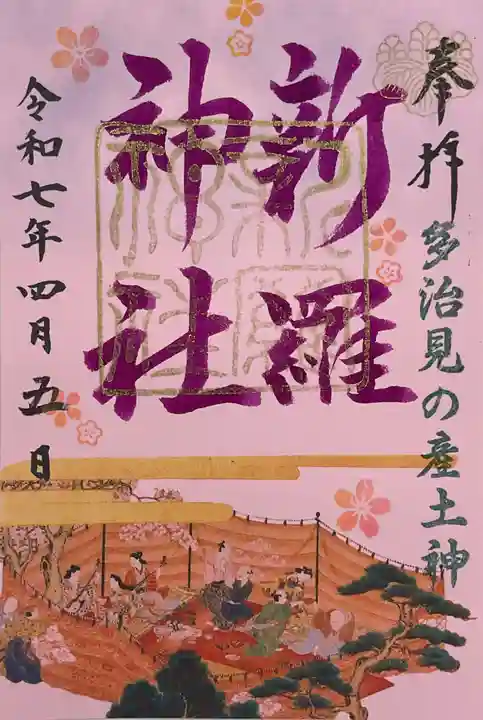 奉拝
多治見の産土神
新羅
神社
令和七年四月五日